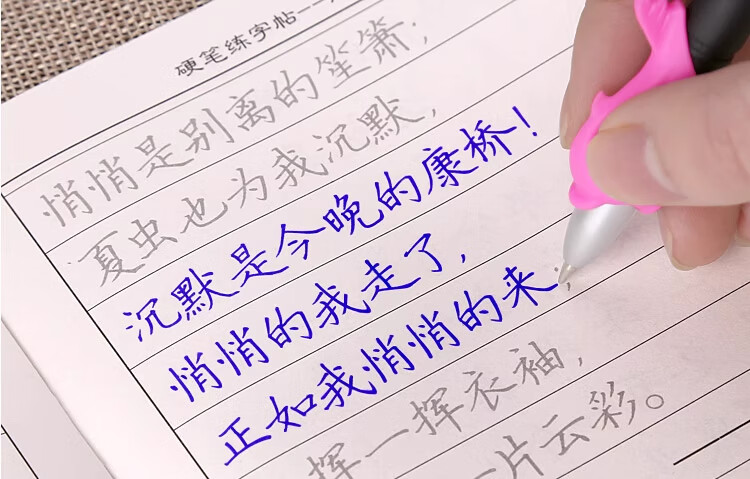 硬笔练字帖--
悄悄是别离的笙箫；
夏虫也为我沉默，
沉默是今晚的康桥！
悄悄的我走了，
正如我悄悄的来；
挥一挥衣袖，
一片云彩。